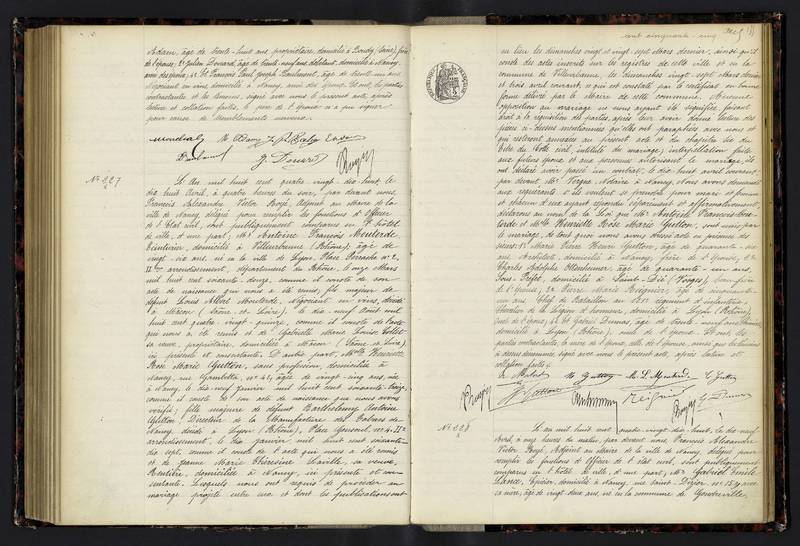 Adam, âgé de trente-huit ans, propriétaire, domicilié à Bondy (Seine), frère
de l'épouse; 3° Julien Douard, âgé de trente-neuf ans, débitant, domicilié à Nancy,
ami des époux; 4° et François Paul Joseph Paulmont, âgé de trente-un ans
négociant en vins, domicilié à Nancy, ami des époux. Et ont, les parties
contractantes et les témoins, signé avec nous le présent acte, après
lecture et collation faites, le père de l'épouse n'a pu signer
pour cause de tremblements nerveux.
N° 227
L'An mil huit cent quatre vingt-dix-huit, le
dix huit Avril, à quatre heures du soir, par devant nous,
François Alexandre Victor Boyé, Adjoint au Maire de la
ville de Nancy, délégué pour remplir les fonctions d'Officier
de l'Etat civil, sont publiquement comparus en l'hôtel
de ville, d'une part, Mr Antoine François Mouterde,
teinturier, domicilié à Villeurbanne (Rhône), âgé de
vingt-six ans, né en la ville de Lyon, Place Perrache n° 2,
IIme arrondissement, département du Rhône, le onze Mars
mil huit cent soixante-douze, comme il conste de son
acte de naissance qui nous a été remis, fils majeur de
défunt Louis Albert Mouterde, négociant en vins, décédé
à Mâcon (Saône-et-Loire), le dix-neuf Août mil
huit cent quatre-vingt-quinze, comme il conste de l'acte
qui nous a été remis et de Gabrielle Marie Louise Collet
sa veuve, propriétaire, domiciliée à Mâcon (Saône-et-Loire),
ici présente et consentante. D'autre part, Melle Henriette
Rose Marie Gutton, sans profession, domiciliée à
Nancy, rue Gambetta, n° 42, âgée de vingt-cinq ans, née
à Nancy, le dix-neuf janvier mil huit cent soixante-treize,
comme il conste de son acte de naissance que nous avons
vérifié; fille majeure de défunt Barthélemy Antoine
Gutton, Directeur de la Manufacture des Tabacs de
Nancy, décédé à Lyon (Rhône), Place Gensoul, n° 4, IIe
arrondissement, le dix janvier mil huit cent soixante-
dix sept, comme il conste de l'acte qui nous a été remis
et de Jeanne Marie Thérésine, sa veuve,
Rentière, domiciliée à Nancy, ici présente et con-
sentante. Lesquels nous ont requis de procéder au
mariage projeté entre eux et dont les publications ont
cent cinquante-cinq
eu lieu les dimanches vingt et vingt-sept Mars dernier, ainsi qu'il
conste des actes inscrits sur les registres de cette ville et en la
commune de Villeurbanne, les dimanches vingt-sept Mars dernier
et trois avril courant, ce qui est constaté par le certificat en bonne
forme délivré par le Maire de cette commune. Aucune
opposition au mariage ne nous ayant été signifiée, faisant
droit à la réquisition des parties, après leur avoir donné lecture des
pièces ci-dessus mentionnées qu'elles ont paraphées avec nous et
qui resteront annexées au présent acte et du chapitre six du
titre du Code civil, intitulé du mariage; interpellation faite
aux futurs époux et aux personnes autorisant le mariage, ils
ont déclaré avoir passé un contrat, le dix-huit avril courant,
par devant Me Vergne, Notaire à Nancy. Nous avons demandé
aux requérants s'ils veulent se prendre pour mari et femme
et chacun d'eux ayant répondu séparément et affirmativement,
déclarons au nom de la Loi que Mr Antoine François Mou-
terde et Melle Henriette Rose Marie Gutton, sont unis par
le mariage, de tout quoi nous avons dressé acte en présence de
Marie Pierre Henri Gutton, âgé de quarante-
ans, Architecte, domicilié à Nancy, frère de l'épouse, 2°
Charles Adolphe Oltenheimer, âgé de quarante-un ans,
Sous-Préfet, domicilié à Saint-Dié (Vosges), beau-frère
de l'épouse; 3° Pierre Marie Reignié, âgé de cinquante-
un ans, Chef de Bataillon au régiment d'infanterie,
Chevalier de la Légion d'honneur, domicilié à Lyon (Rhône),
oncle de l'époux; 4° et Gabriel Dumas, âgé de trente-neuf ans,
domicilié à Lyon (Rhône), oncle de l'époux. Et ont, les
parties contractantes, la mère de l'époux, celle de l'épouse, ainsi que les témoins
ci-dessus dénommés, signé avec nous le présent acte, après lecture et
collation faites.
N° 228
L'an mil huit cent quatre vingt-dix-huit, le dix-neuf
Avril, à onze heures du matin, par devant nous, François Alexandre
Victor Boyé, Adjoint au Maire de la ville de Nancy, délégué pour
remplir les fonctions d'Officier de l'état civil, sont publiquement
comparus en l'hôtel de ville, d'une part, Mr Gabriel Emile
Lance, Epicier, domicilié à Nancy, rue Saint-Dizier, n° 159 avec
sa mère, âgé de vingt deux ans, né en la commune de Gondreville,